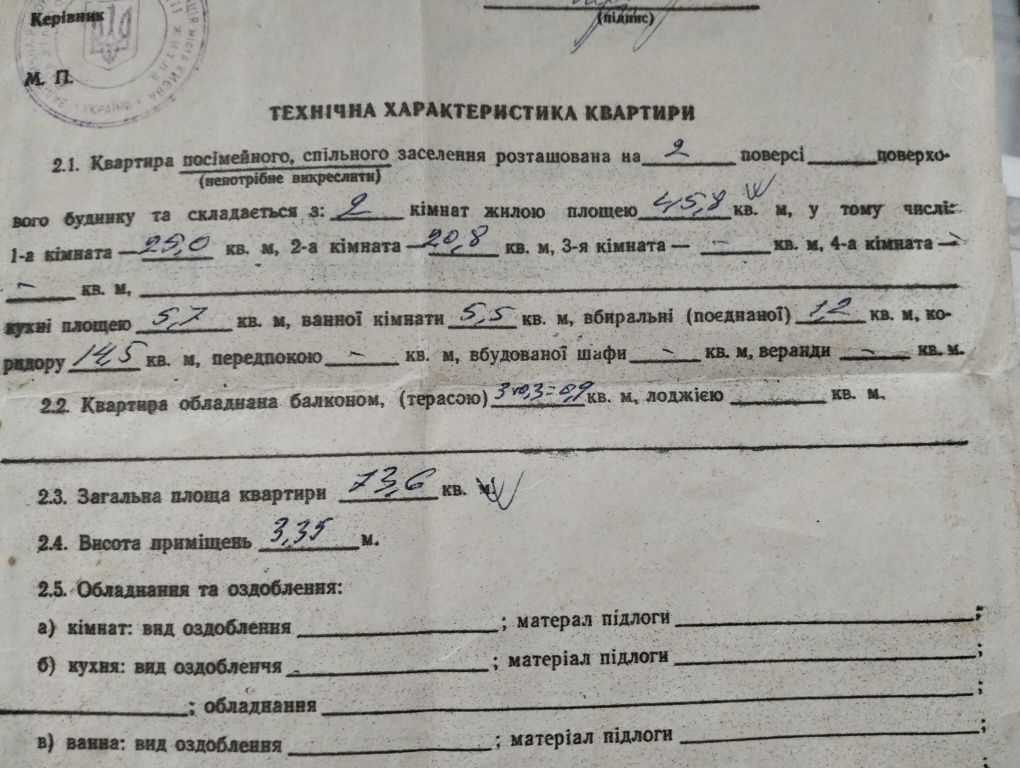 Керівник
(підпис)
М. П.
УКРАЇНИ
ТЕХНІЧНА ХАРАКТЕРИСТИКА КВАРТИРИ
2.1. Квартира посімейного, спільного заселення розташована на 2 поверсі ______ поверхо-
(непотрібне викреслити)
вого будинку та складається з: 2 кімнат жилою площею 45,8 кв. м, у тому числі:
1-а кімната — 25,0 кв. м, 2-а кімната — 20,8 кв. м, 3-я кімната — – кв. м, 4-а кімната —
– кв. м,
кухні площею 5,7 кв. м, ванної кімнати 5,5 кв. м, вбиральні (поєднаної) 1,2 кв. м, ко-
ридору 14,5 кв. м, передпокою – кв. м, вбудованої шафи – кв. м, веранди – кв. м.
2.2. Квартира обладнана балконом, (терасою) 3×0,3=0,9 кв. м, лоджією ______ кв. м.
2.3. Загальна площа квартири 73,6 кв. м.
2.4. Висота приміщень 3,35 м.
2.5. Обладнання та оздоблення:
а) кімнат: вид оздоблення ______ ; матерал підлоги ______ ;
б) кухня: вид оздобленчя ______ ; матеріал підлоги ______ ;
______ ; обладнання ______ ;
в) ванна: вид оздоблення ______ ; матеріал підлоги ______ ;